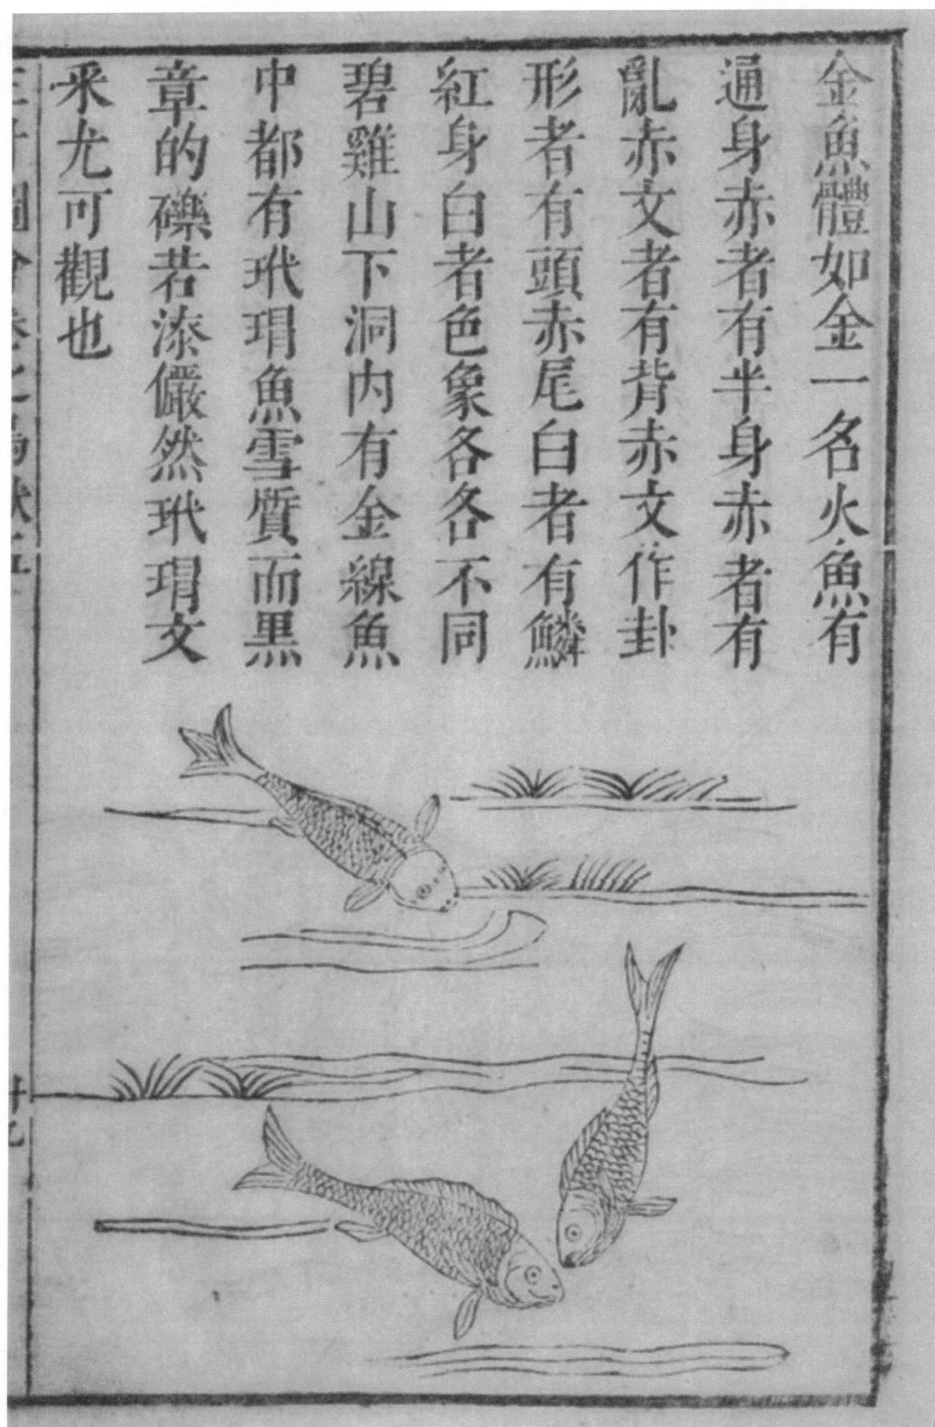 金魚體如金一名火魚有
通身赤者有半身赤者有
亂赤文者有背赤文作卦
形者有頭赤尾白者有鱗
紅身白者色象各各不同
碧雞山下洞内有金線魚
中都有玳瑁魚雪質而黑
章的礫若漆儼然玳瑁文
采尤可觀也